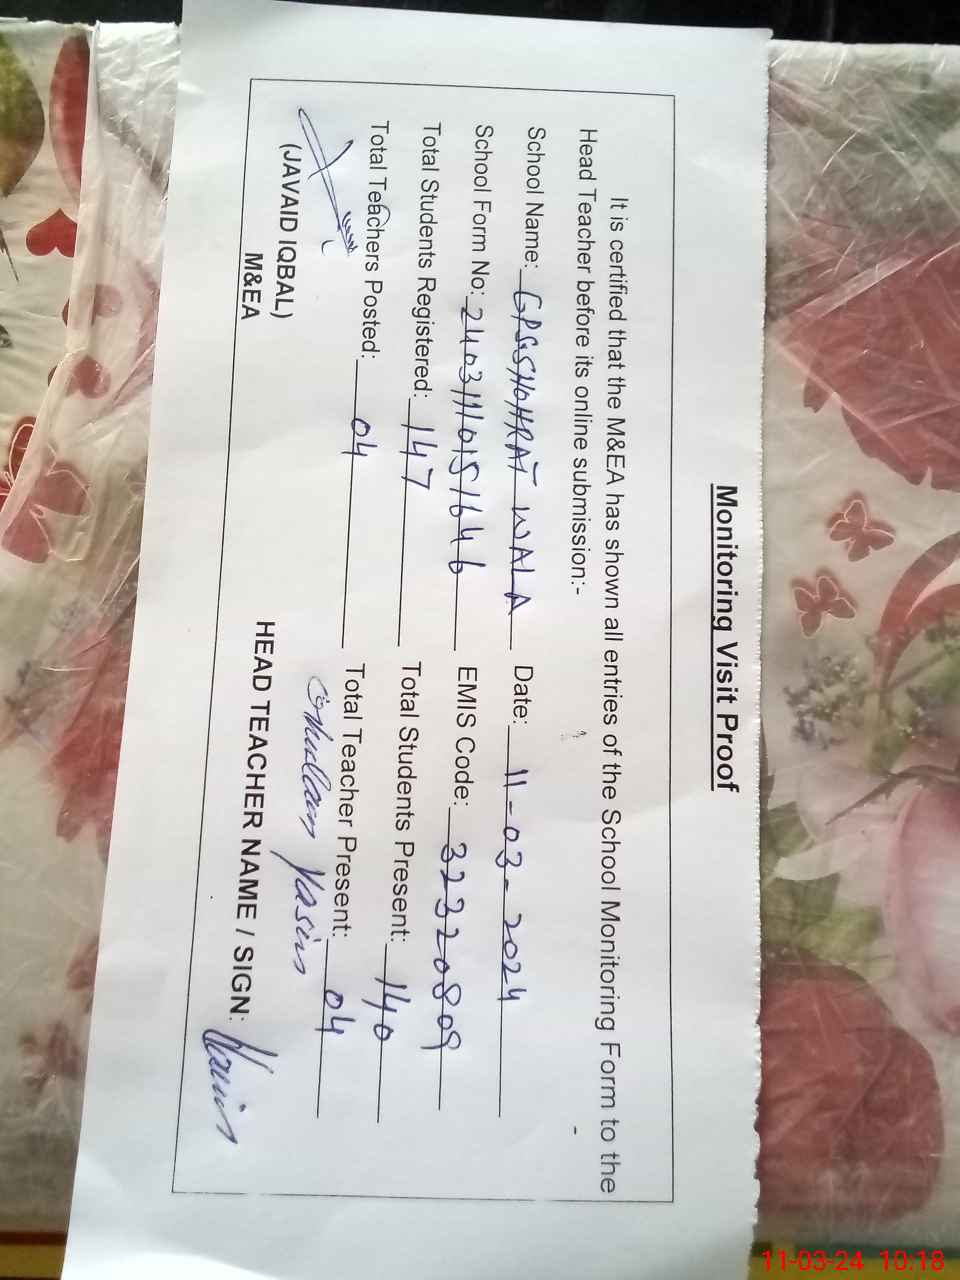 Monitoring Visit Proof
It is certified that the M&EA has shown all entries of the School Monitoring Form to the
Head Teacher before its online submission:-
School Name: GPS SHOHRAT WALA Date: 11-03-2024
School Form No: 24031110151646 EMIS Code: 32320809
Total Students Registered: 147 Total Students Present: 140
Total Teachers Posted: 04 Total Teacher Present: 04
Ghullam Yasin
(JAVAID IQBAL)
M&EA
HEAD TEACHER NAME / SIGN:
11-03-24 10:18